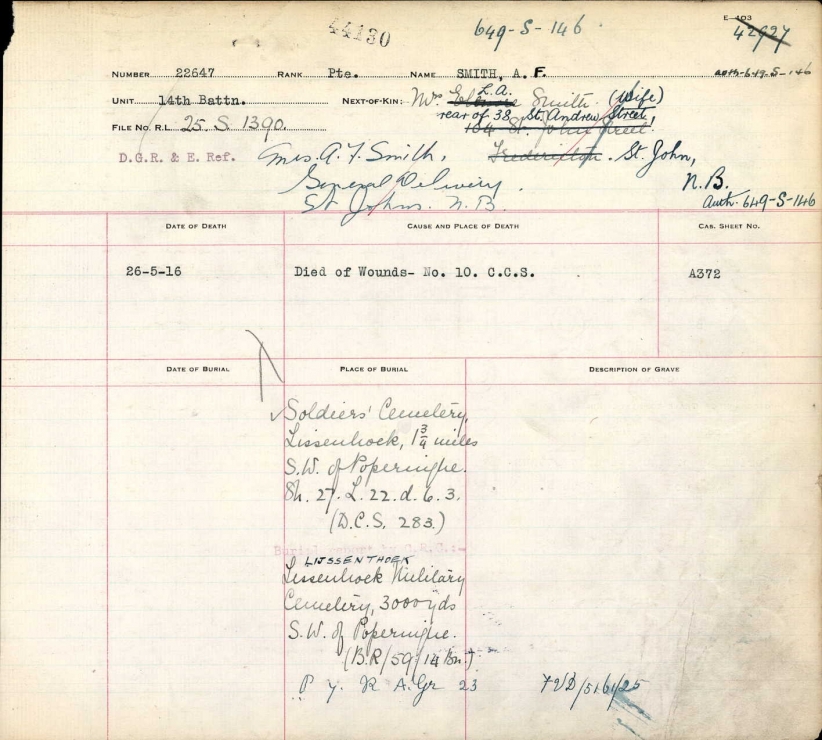 44130
649-S-146
E-403
42927
NUMBER 22647 RANK Pte. NAME SMITH, A. F.
auth-649-S-146
UNIT 14th Battn. NEXT-OF-KIN: Mrs L.A. Smith. (Wife)
rear of 38 St. Andrew Street,
104 St. John Street.
FILE NO. R.L. 25. S. 1390.
D.G.R. & E. Ref. Mrs. A. F. Smith, Fredericton. St. John,
General Delivery. N.B.
St Johns. N.B. Auth. 649-S-146
DATE OF DEATH CAUSE AND PLACE OF DEATH CAS. SHEET NO.
26-5-16 Died of Wounds- No. 10. C.C.S. A372
DATE OF BURIAL PLACE OF BURIAL DESCRIPTION OF GRAVE
Soldiers' Cemetery,
Lissenhoek, 1 3/4 miles
S.W. of Poperinghe.
Sh. 27. L. 22. d. 6. 3.
(D.C.S. 283.)
Burial report
LIJSSENTHOEK
Lissenhoek Military
Cemetery, 3000 yds
S.W. of Poperinghe.
(B.R/59/14 Bn.)
P y. R A. Gr 23